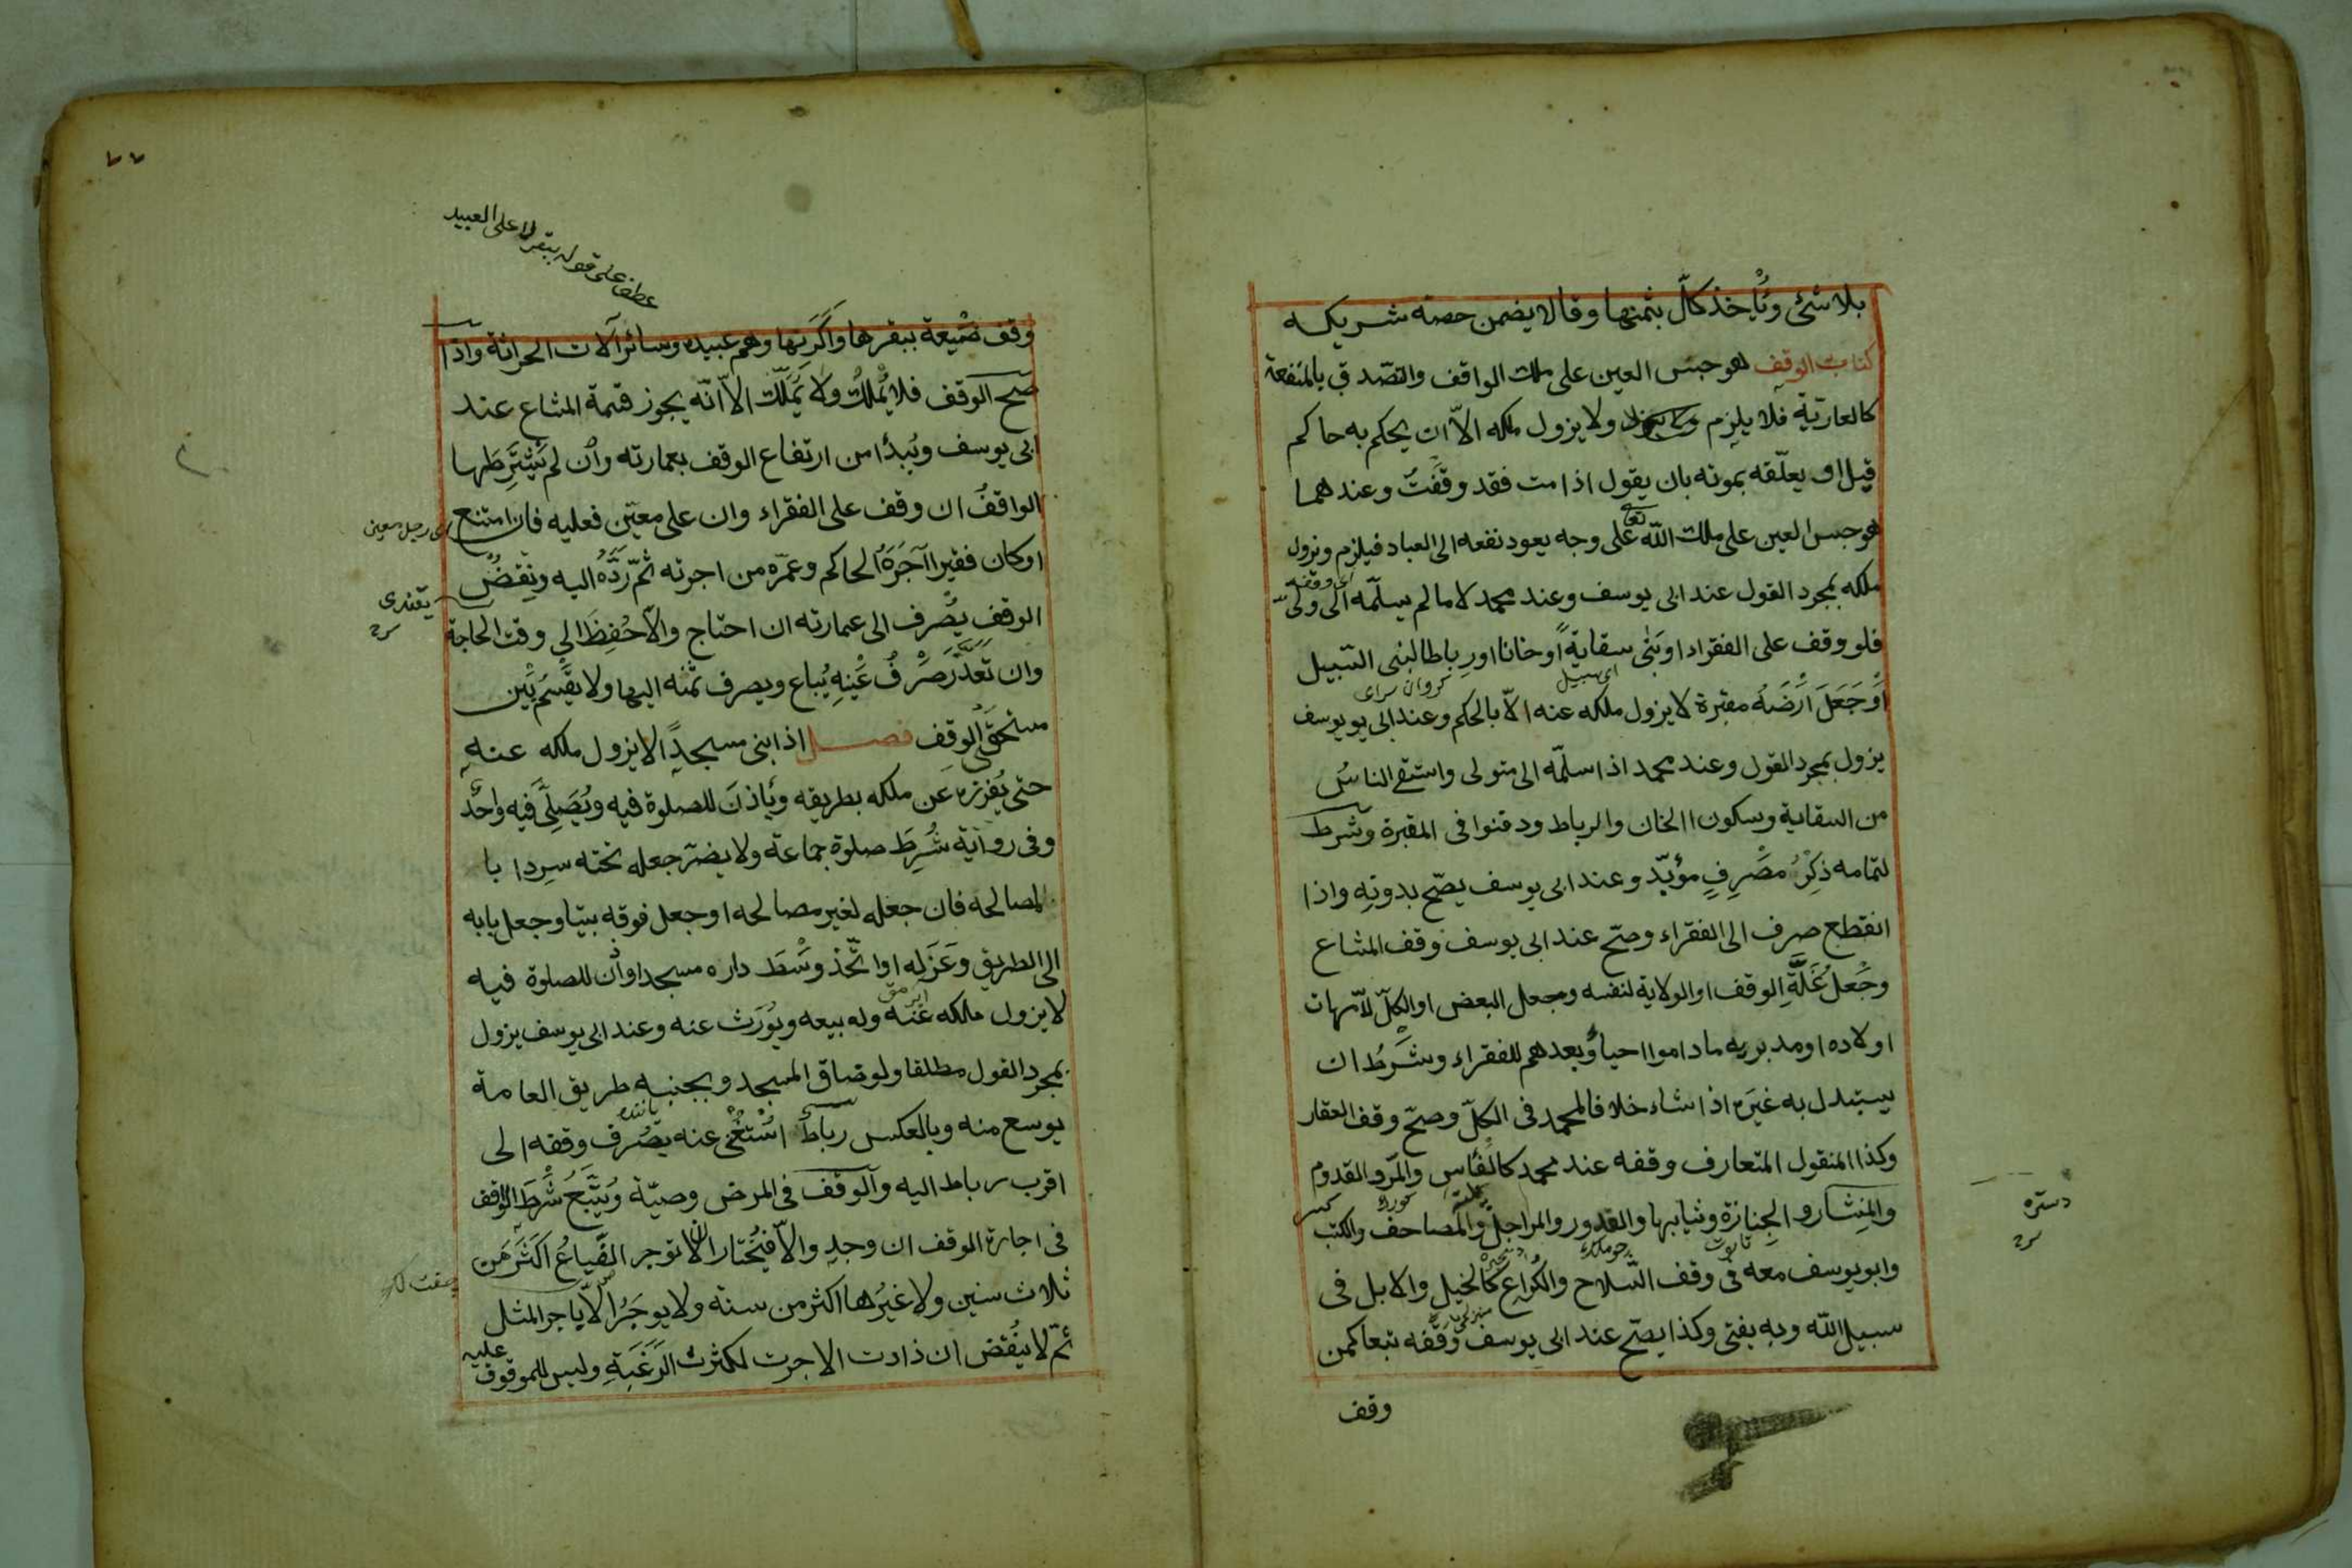 بلا شئ ويأخذ كلّ بثمنها وقالا يضمن حصة شريكه
كتاب الوقف هو حبس العين على ملك الواقف والتصدق بالمنفعة
كالعارية فلا يلزم ولا يزول ملكه الاّ ان يحكم به حاكم
قيل او يعلّقه بموته بان يقول اذا مت فقد وقفتُ وعندهما
هو حبس العين على ملك الله تعالى على وجه يعود نفعه الى العباد فيلزم ويزول
ملكه بمجرد القول عند ابى يوسف وعند محمد لا ما لم يسلّمه الى ولى
فلو وقف على الفقراء او بنى سقاية او خانا او رباطا لبنى السبيل
او جَعَلَ اَرْضَهُ مقبرة لا يزول ملكه عنه الاّ بالحكم وعند ابى يوسف
يزول بمجرد القول وعند محمد اذا سلّمه الى متولى واستقى الناسُ
من السقاية وسكون االخان والرباط ودفنوا فى المقبرة وشرط
لتمامه ذِكْرُ مَصْرِفٍ مؤبّد وعند ابى يوسف يصّح بدونِه واذا
انقطع صرف الى الفقراء وصّح عند ابى يوسف وقف المشاع
وجَعْلُ غَلَّةِ الوقف او الولاية لنفسه وجعل البعض او الكلّ لامّهات
اولاده او مدبريه ما داموا احياءً وبعدهم للفقراء وشَرْطُ ان
يستبدل به غيرَه اذا شاء خلافا لمحمد فى الكلّ وصحّ وقف العقار
وكذا المنقول المتعارف وقفه عند محمد كالفأس والمرّ والقدوم
والمِنشار والجِنازة وثيابها والقدور والمراجل والمصاحف والكتب
وابو يوسف معه فى وقف السّلاح والكُراع كالخيل والابل فى
سبيل الله وبه يفتى وكذا يصّح عند ابى يوسف وقفه تبعا كمن
وقف
دستره
عطف على قوله ببقرها لا على العبيد
٧٧
وقف ضَيعة ببقرها واَكَرَتِها وهم عبيده وسائر آلات الحراثة واذا
صّح الوقف فلا يُملَكُ ولا يُمَلَّك الاّ انّه يجوز قسمة المشاع عند
ابى يوسف ويُبدأ من ارتفاع الوقف بعمارته وان لم يَشْتَرِطها
الواقفُ ان وقف على الفقراء وان على معيّن فعليه فان امتنع
اى رجل معين
او كان فقيرا آجَرَهُ الحاكم وعمّره من اجرته ثمّ رَدَّهُ اليه ونِقضُ
الوقف يُصْرف الى عمارته ان احتاج والاّ حُفِظَ الى وقت الحاجة
وان تَعَذَّرَ صَرْفُ عَيْنِهِ يُباع ويصرف ثمنه اليها ولا يقسَّمُ بَيْن
مستحقّى الوقف فصل اذا بنى مسجداً لا يزول ملكه عنهِ
حتى يُفرزه عَن ملكه بطريقه ويأذنَ للصلوة فيه ويُصَلِّىَ فيه واحدٌ
وفى رواية شُرِطَ صلوة جماعة ولا يضرّ جعله تحته سِردابا
لمصالحه فان جعله لغير مصالحه او جعل فوقه بيتا وجعل بابه
الى الطريق وعَزَله او اتّخذ وسْطَ داره مسجدا واذن للصلوة فيه
لا يزول ملكه عَنه وله بيعه ويُوْرَث عنه وعند ابى يوسف يزول
بمجرد القول مطلقا ولو ضاق المسجد وبجنبه طريق العامة
يوسع منه وبالعكس رباطٌ اُسْتُغْنى عنه يُصرف وقفه الى
اقرب رباط اليه والوقف فى المرض وصيّة ويُتَّبَعُ شَرْطَ الواقف
فى اجارة الوقف ان وجد والاّ فيُختار ان لا تؤجر الضِّياعُ اكثرَ من
ثلاث سنين ولا غيرُها اكثر من سنة ولا يوجَرُ الاّ باجر المثل
ثمّ لا يُنقض ان ذادت الاجرت لكثرت الرَغبَةِ وليس للموقوف عليه